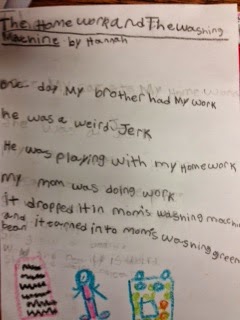 The Homework and The Washing
Machine by Hannah
one day My brother had My work
he was a weird Jerk
He was playing with my Homework
my mom was doing work
it dropped it in mom's washing machin
and it earned in to mom's washing green
bean